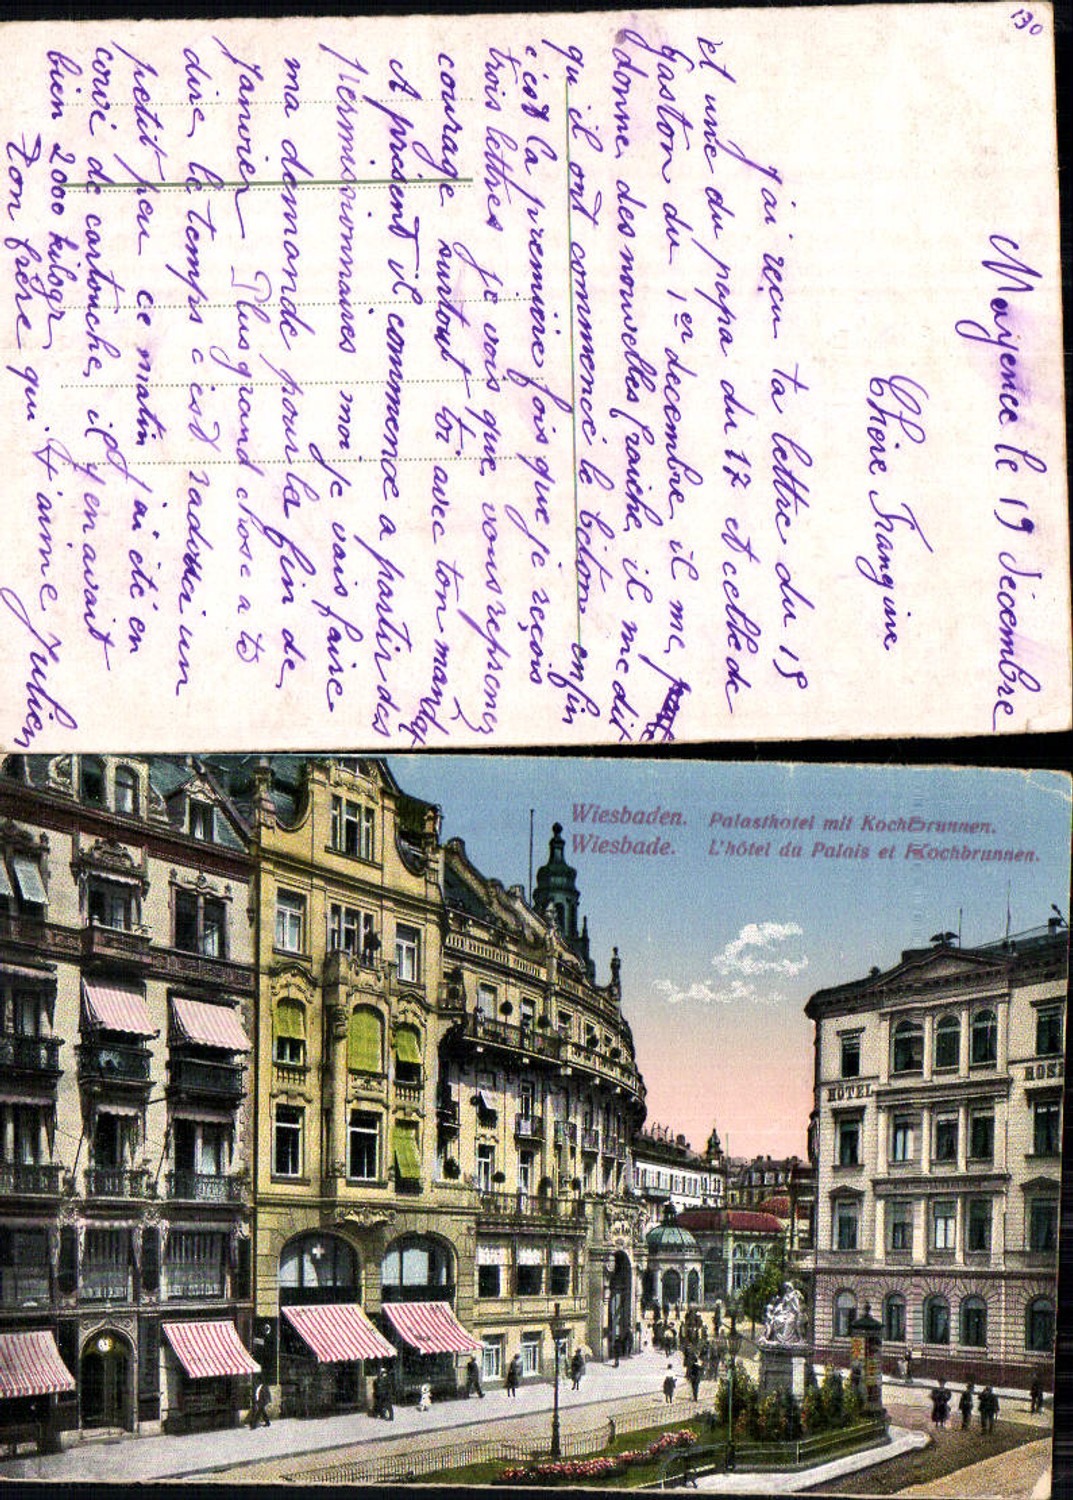 130
Mayence le 19 Décembre
Chère Frangine
j'ai reçu ta lettre du 15
et une du papa du 17 et celle de
Gaston du 1er decembre, il me
donne des nouvelles fraiche, il me dit
qu'il ont commencé le béton enfin
c'est la première fois que je reçois
trois lettres je vois que vous reprenez
courage surtout toi avec ton mandat
A présent il commence a partir des
permissionnaires moi je vais faire
ma demande pour la fin de
Janvier Plus grand chose a te
dire, le temps c'est radouci un
petit peu ce matin j'ai été en
corvé de cartouche, il y en avait
bien 2000 kilogr
Ton frère qui t'aime Julien
Wiesbaden. Palasthotel mit Kochbrunnen.
Wiesbade. L'hôtel du Palais et Kochbrunnen.
HOTEL
ROSE